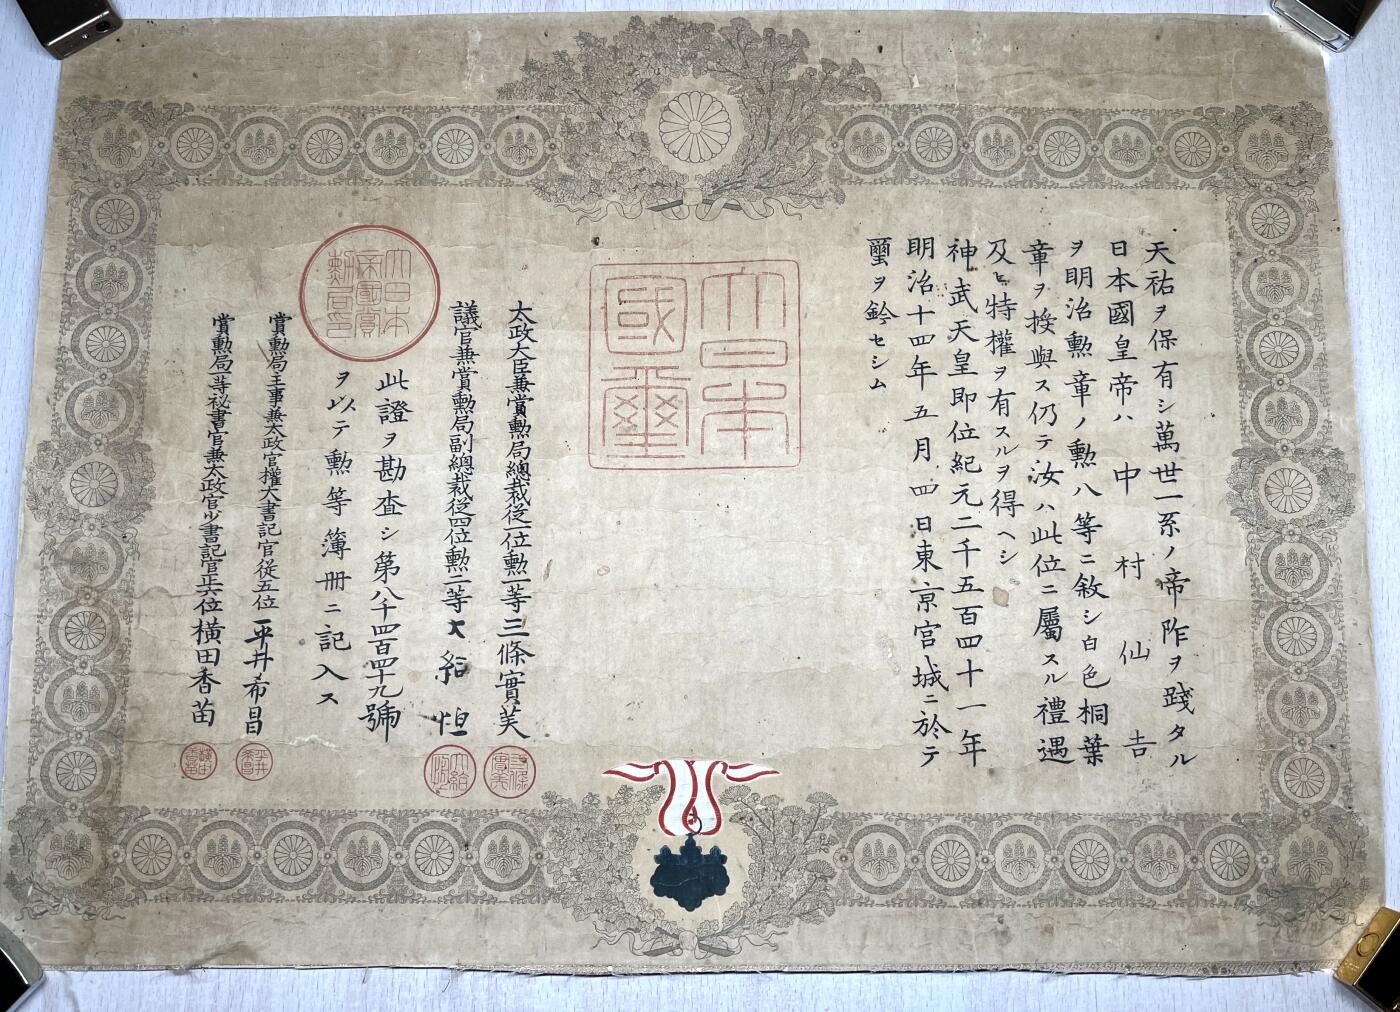 天祐ヲ保有シ萬世一系ノ帝阼ヲ踐タル
日本國皇帝ハ中村仙吉
ヲ明治勲章ノ勲八等ニ敘シ白色桐葉
章ヲ授與ス仍テ汝ハ此位ニ屬スル禮遇
及ヒ特權ヲ有スルヲ得ヘシ
神武天皇即位紀元二千五百四十一年
明治十四年五月四日東京宮城ニ於テ
璽ヲ鈐セシム
大日本
國璽
太政大臣兼賞勲局總裁從一位勲一等三條實美
議官兼賞勲局副總裁從四位勲二等大給恒
大日本
帝國賞
勲局印
此證ヲ勘査シ第八千四百四十九號
ヲ以テ勲等簿冊ニ記入ス
賞勲局主事兼太政官權大書記官從五位平井希昌
賞勲局一等祕書官兼太政官少書記官正六位横田香苗